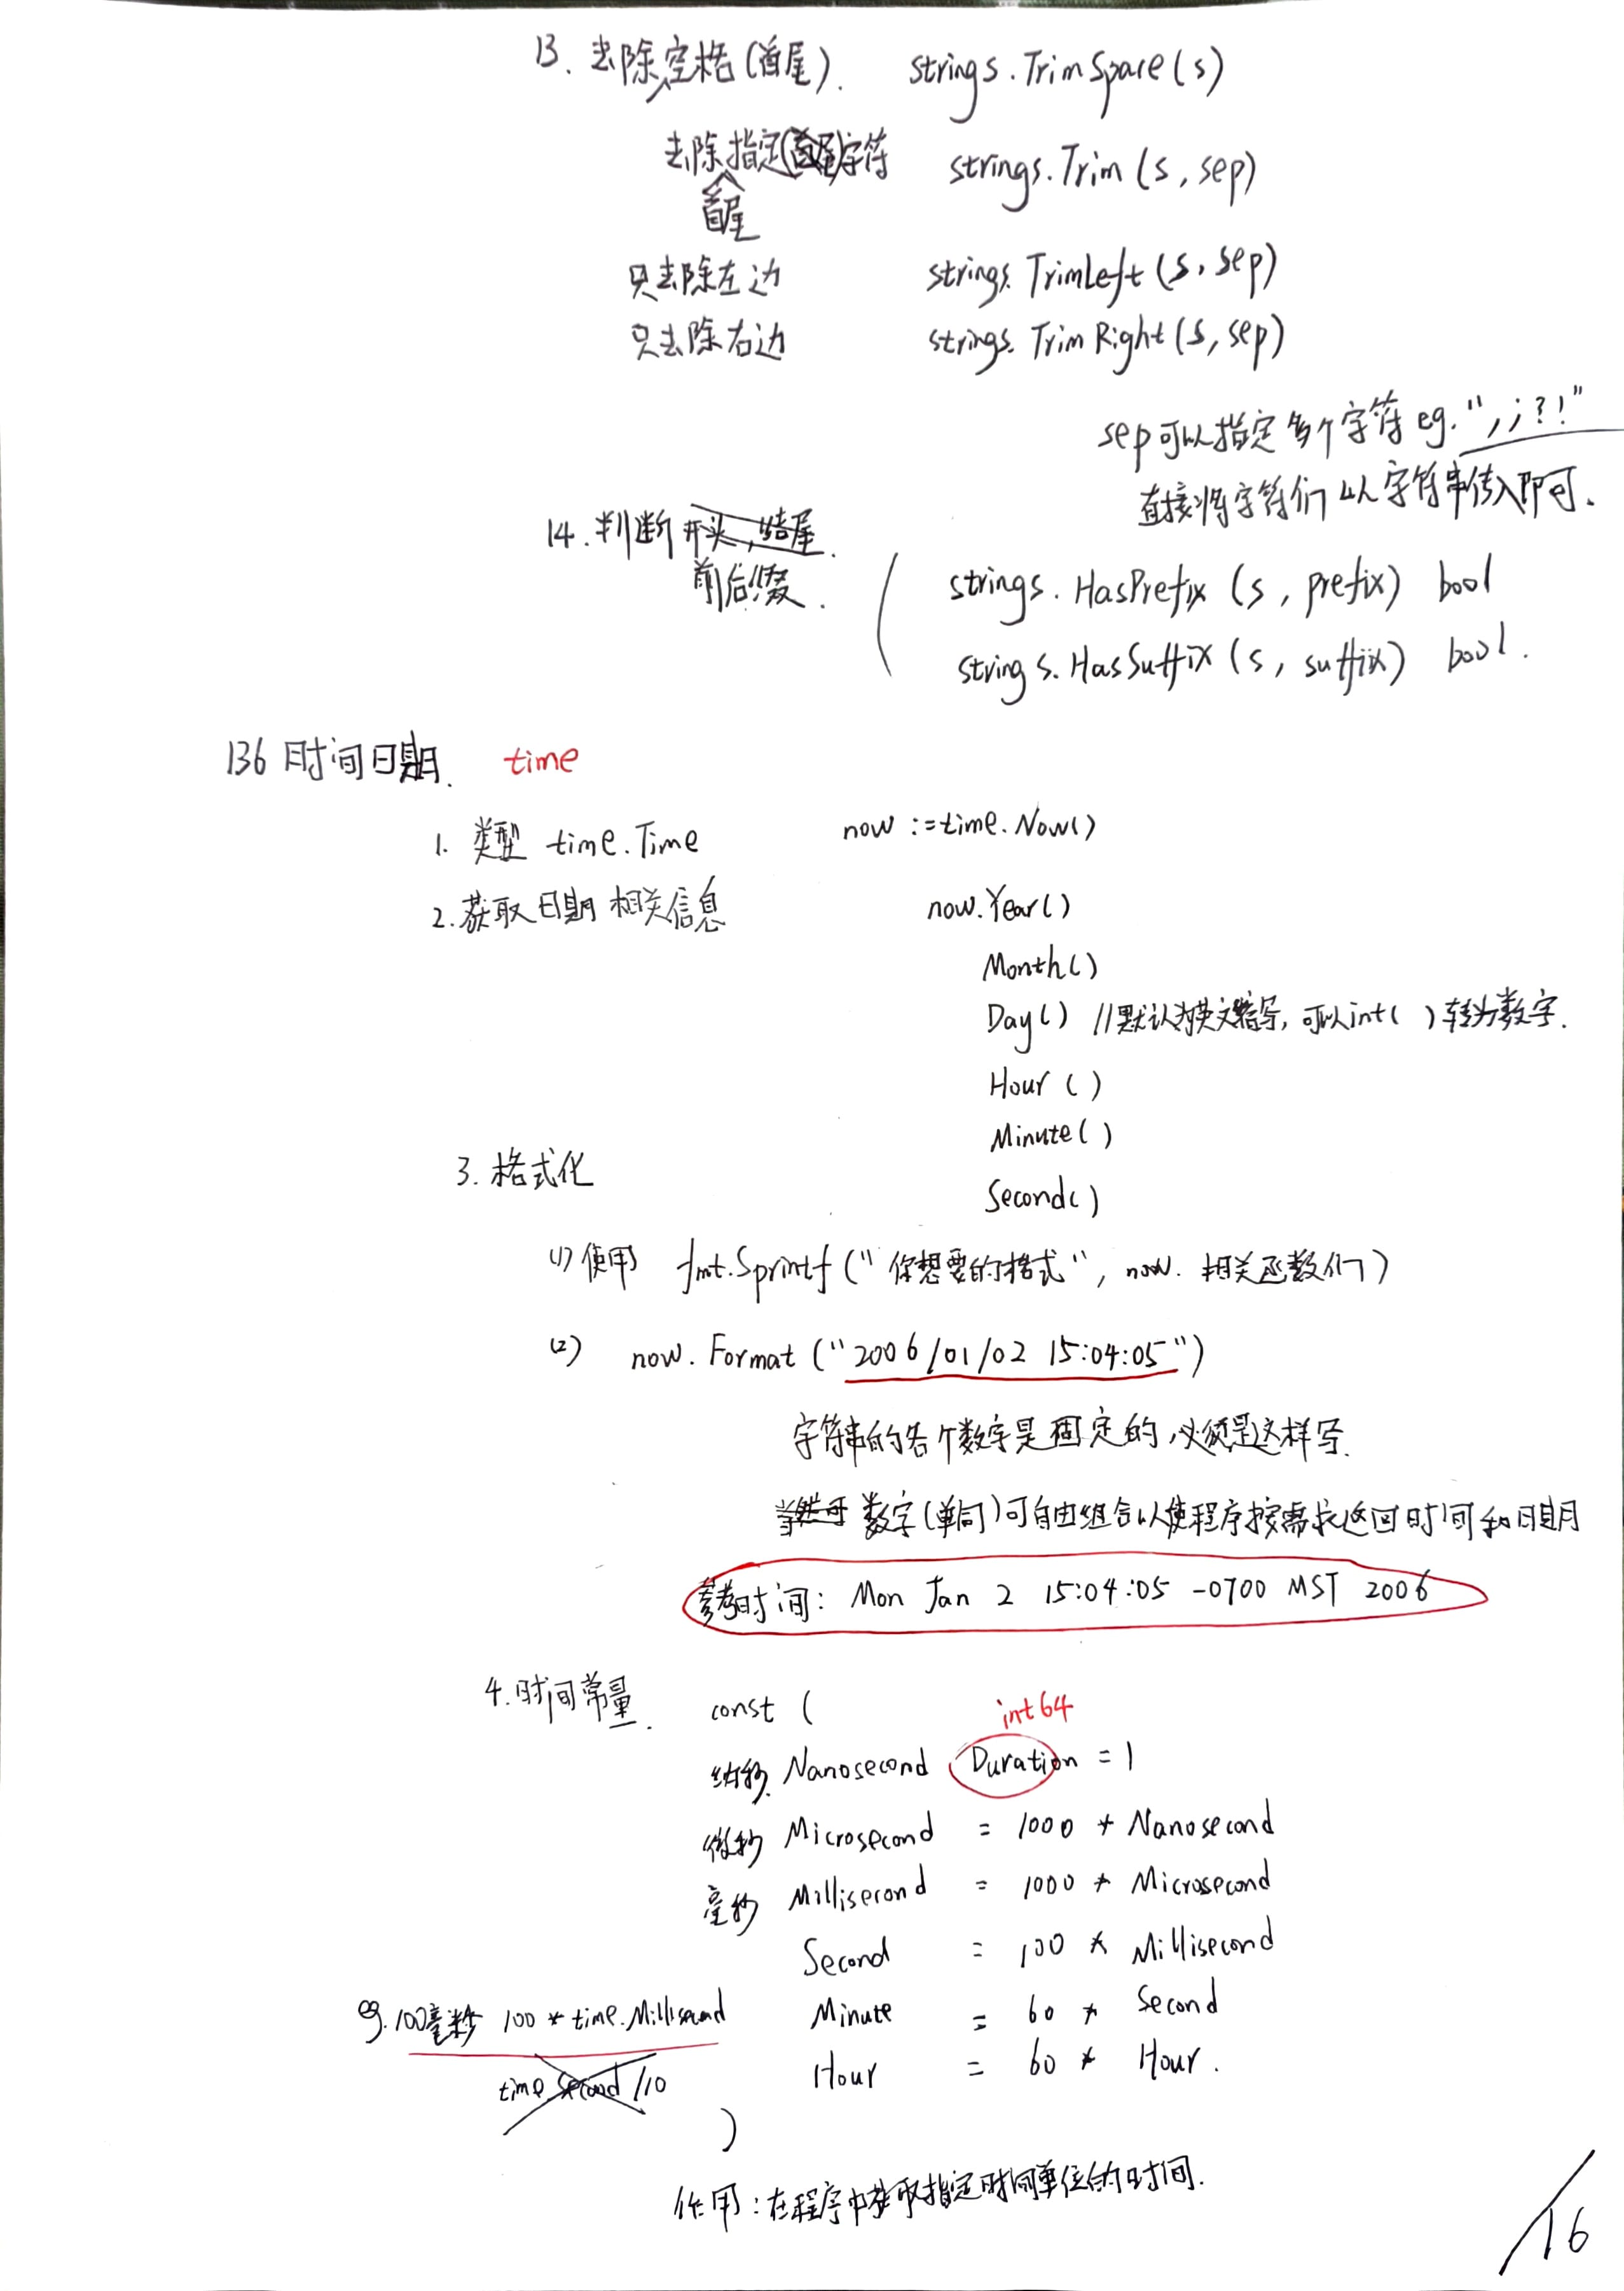 13. 去除空格(首尾). strings.TrimSpace(s)
去除指定字符 strings.Trim(s, sep)
首尾
只去除左边 strings.TrimLeft(s, sep)
只去除右边 strings.TrimRight(s, sep)
sep可以指定多个字符 eg. ",;?!"
直接将字符们以字符串传入即可.
14. 判断开头,结尾.
前后缀.
strings.HasPrefix(s, prefix) bool
strings.HasSuffix(s, suffix) bool.
136 时间日期. time
1. 类型 time.Time now := time.Now()
2. 获取日期相关信息 now.Year()
Month()
Day() //默认为英文缩写, 可以int( )转为数字.
Hour ()
Minute()
3. 格式化
Second()
(1) 使用 fmt.Sprintf("你想要的格式", now. 相关函数们)
(2) now.Format("2006/01/02 15:04:05")
字符串的各个数字是固定的,必须是这样写.
当然可 数字(单同)可自由组合以使程序按需求返回时间和日期
参考时间: Mon Jan 2 15:04:05 -0700 MST 2006
4. 时间常量. const ( int64
纳秒 Nanosecond Duration = 1
微秒 Microsecond = 1000 * Nanosecond
毫秒 Millisecond = 1000 * Microsecond
Second = 100 * Millisecond
eg. 100毫秒 100 * time.Millisecond Minute = 60 * Second
time.Second/10 Hour = 60 * Hour.
)
作用: 在程序中获取指定时间单位的时间.
16